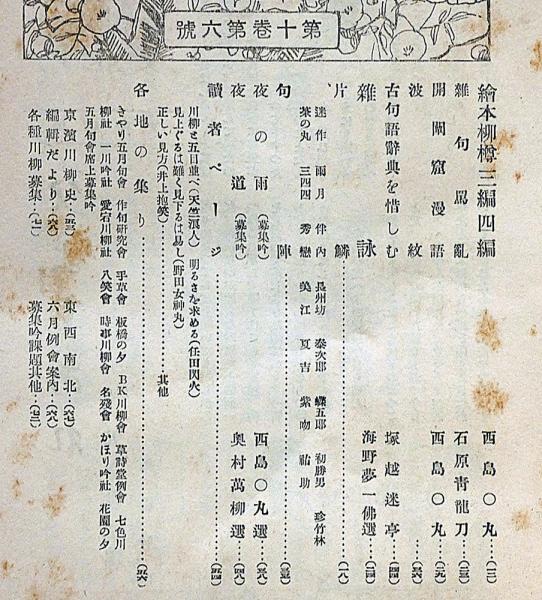 號六第卷十第
繪本柳樽三編四編 西島〇丸 (二)
雜句罵亂 石原靑龍刀
開闢窟漫語 西島〇丸
波紋
古句語辭典を惜しむ 塚越迷亭
雜詠 海野夢一佛選
片鱗 (一八)
迷作 雨月 伴內 長州坊 泰次郎 蝶五郎 初勝男 珍竹林
茶の丸 三四四 秀戀 美江 夏吉 紫吻 祐助
句陣
夜の雨(募集吟) 西島〇丸選
夜道(募集吟) 奧村萬柳選
讀者ページ
川柳と五目並べ(天竺浪人) 明るさを求める(任田閃火)
見上ぐるは難く見下るは易し(野田女神丸)
正しい見方(井上抱笑) 其他
各地の集り
きやり五月句會 作句硏究會 手草會 板橋の夕 BK川柳會 草詩堂例會 七色川
柳社 一川吟社 愛宕川柳社 八笑會 時事川柳會 名殘會 かほり吟社 花園の夕
五月句會席上募集吟
京濱川柳史 東西南北(六七)
編輯だより(六八) 六月例會案內(六八)
各種川柳募集(七一) 募集吟課題其他(七二)